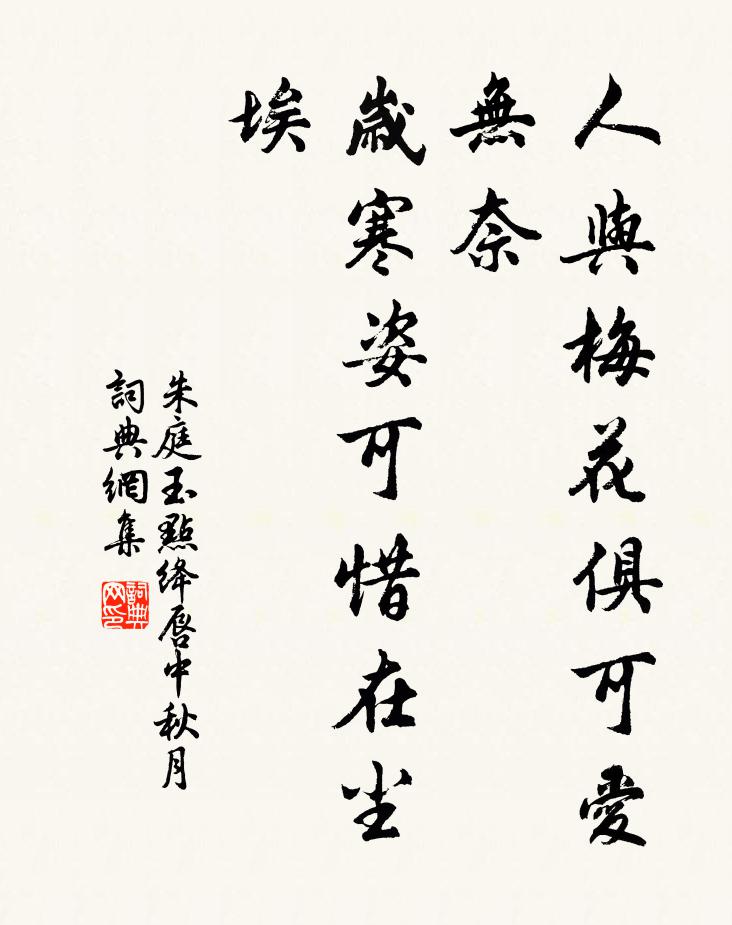 人與梅花俱可愛
無奈
歲寒姿可惜在尘
埃
朱庭玉點绛唇中秋月
詞典網集
詞典
网印